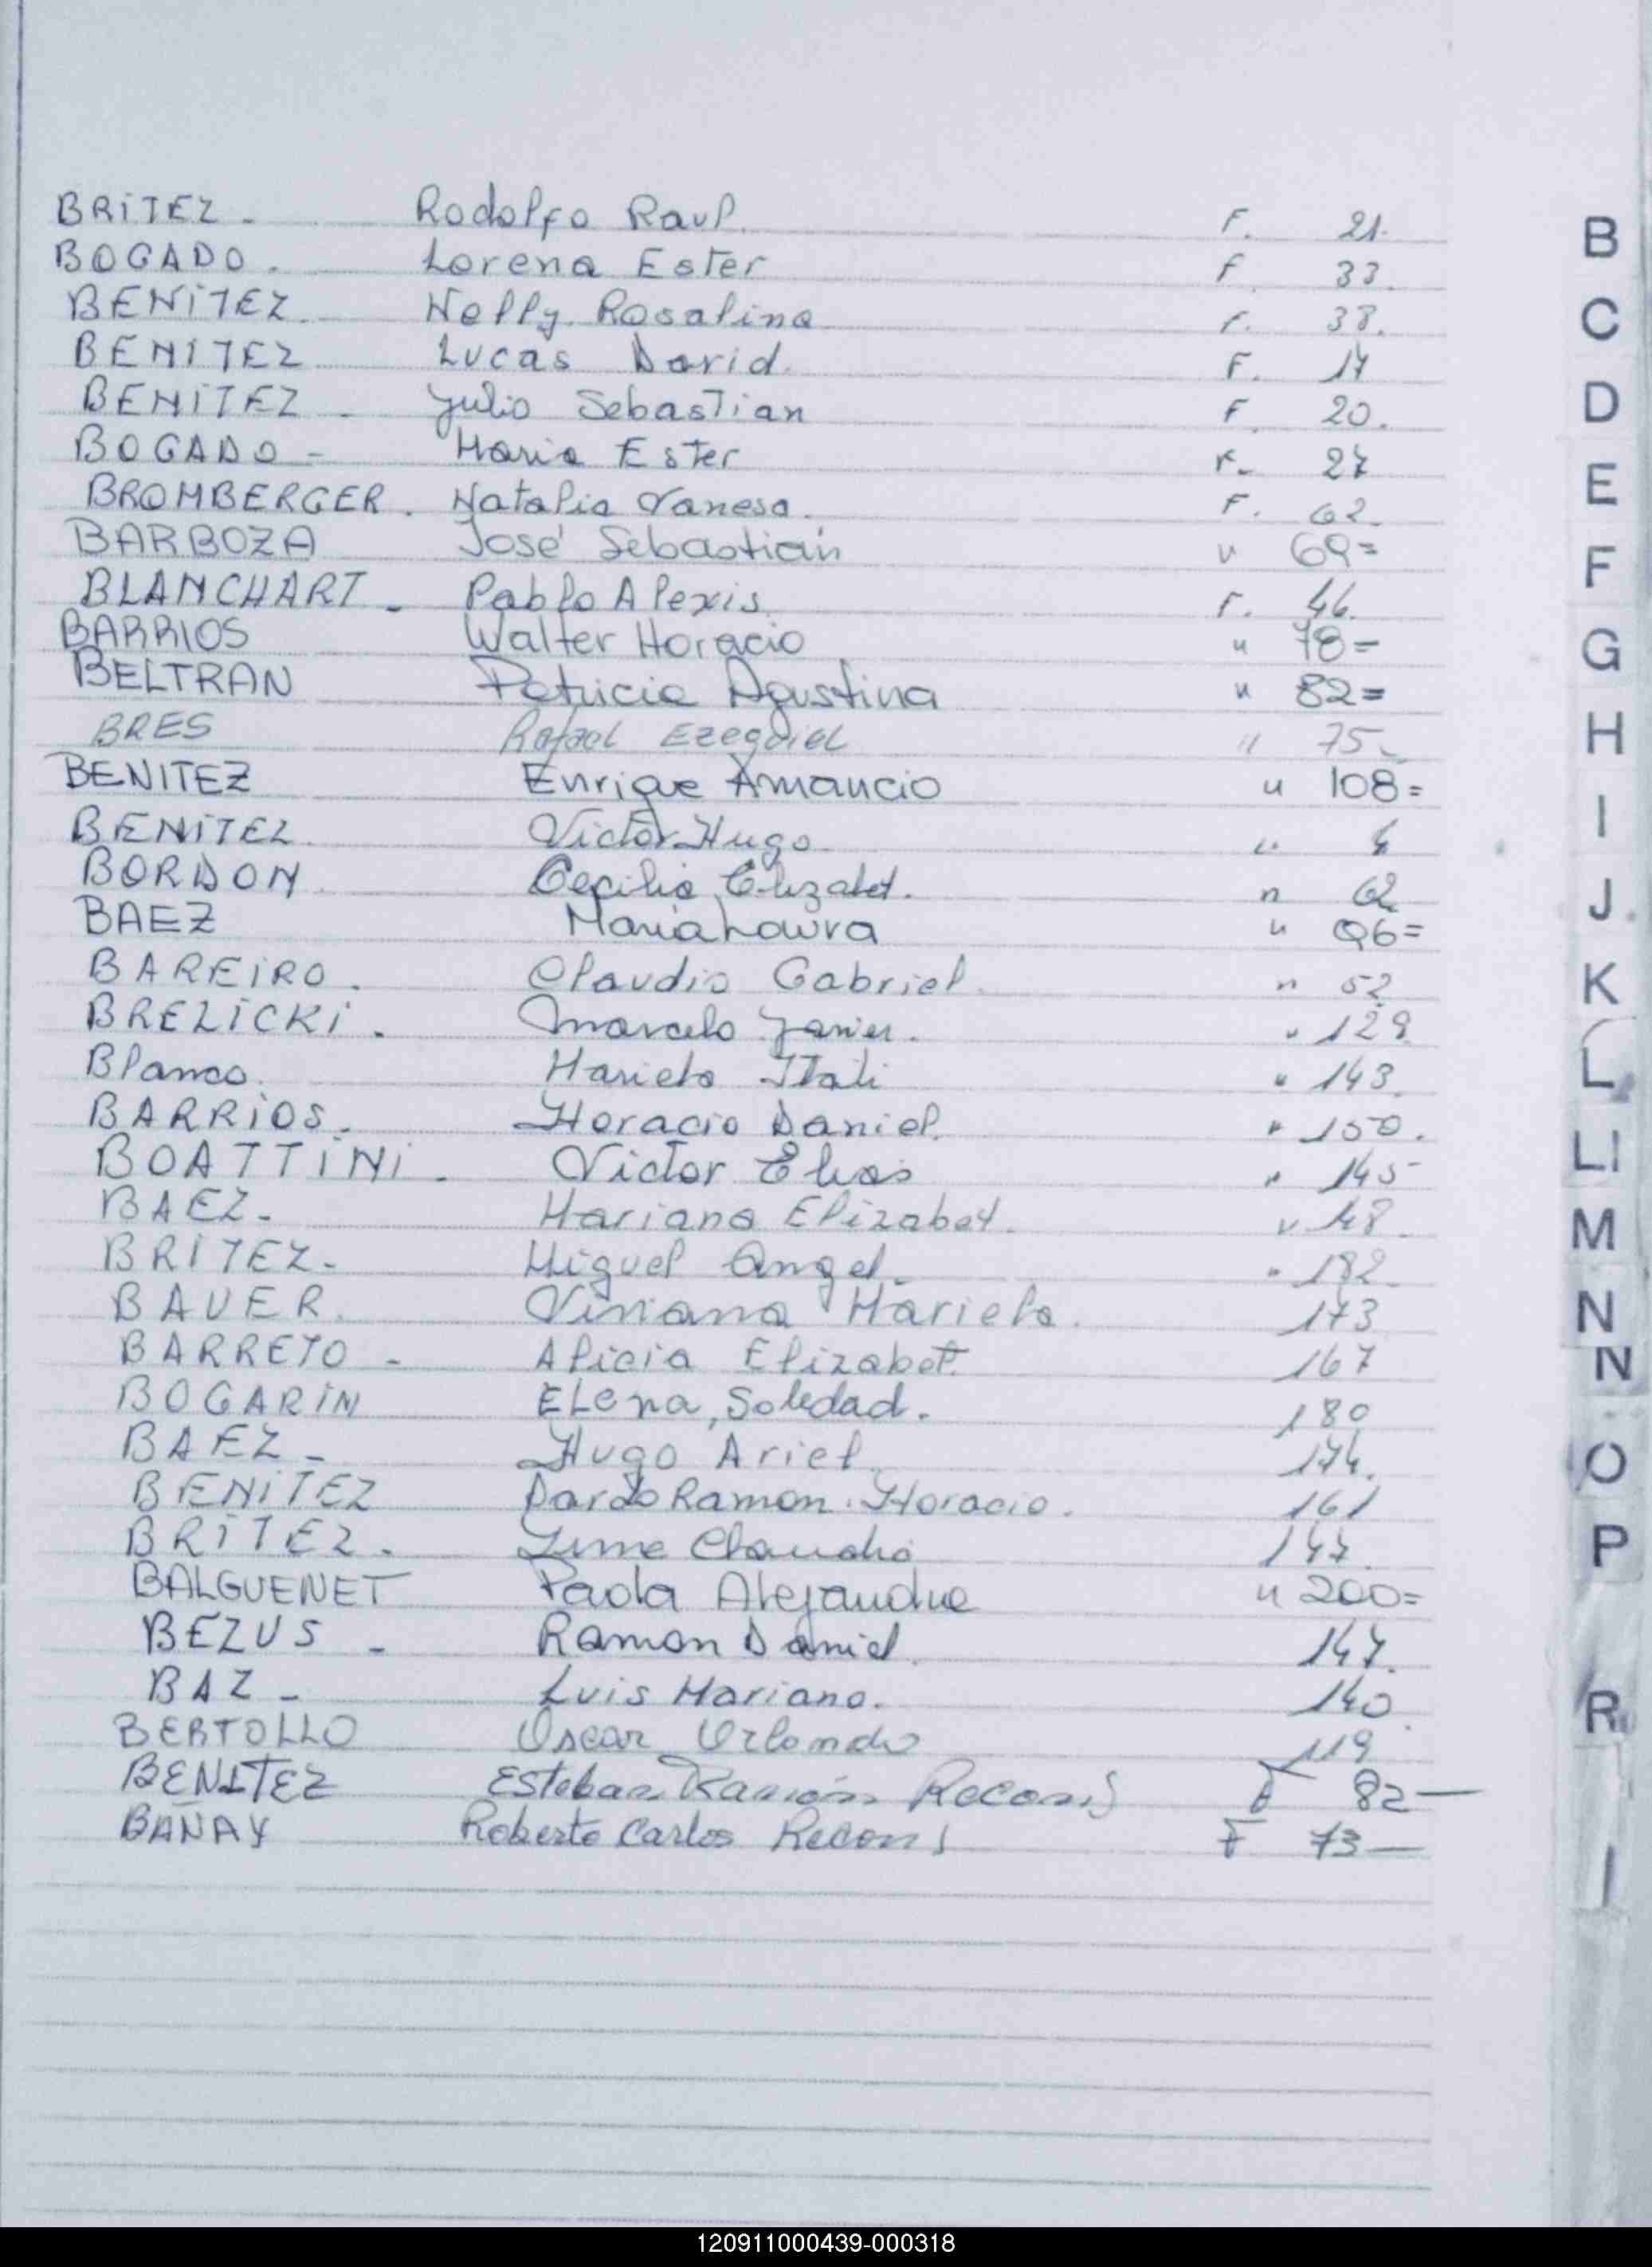 BRITEZ - Rodolfo Raul. F. 21.
BOGADO. Lorena Ester F. 33.
BENITEZ. Nelly Rosalina F. 38.
BENITEZ Lucas David. F. 17
BENITEZ - Julio Sebastian F. 20.
BOGADO - Maria Ester F. 27
BROMBERGER. Natalia Vanesa. F. 62.
BARBOZA José Sebastián u 69=
BLANCHART - Pablo Alexis. F. 46.
BARRIOS Walter Horacio u 78=
BELTRAN Patricia Agustina u 82=
BRES Rafael Ezequiel " 75-
BENITEZ Enrique Amancio u 108=
BENITEZ Victor Hugo
BORDON Cecilia Elizabet. n 62
BAEZ Maria Laura u 96=
BAREIRO. Claudio Gabriel. n 52
BRELICKI. Marcelo Javier. " 129
Blanco. Mariela Itati " 143.
BARRIOS. Horacio Daniel. " 150.
BOATTINI. Victor Elias " 145
BAEZ. Mariana Elizabet.
BRITEZ. Miguel Angel. " 182.
BAUER. Viviana Mariela. 173
BARRETO - Alicia Elizabet. 167
BOGARIN Elena, Soledad. 180
BAEZ - Hugo Ariel. 174.
BENITEZ Dardo Ramon Horacio. 161
BRITEZ. Claudia 147.
BALGUENET Paola Alejandra u 200=
BEZUS - Ramon Daniel. 147.
BAZ - Luis Mariano. 140.
BERTOLLO Oscar Orlando 119
BENITEZ Esteban Ramón Recon. F 82-
BAÑAY Roberto Carlos Recon. F 73-
B
C
D
E
F
G
H
I
J
K
L
Ll
M
N
Ñ
O
P
R
120911000439-000318